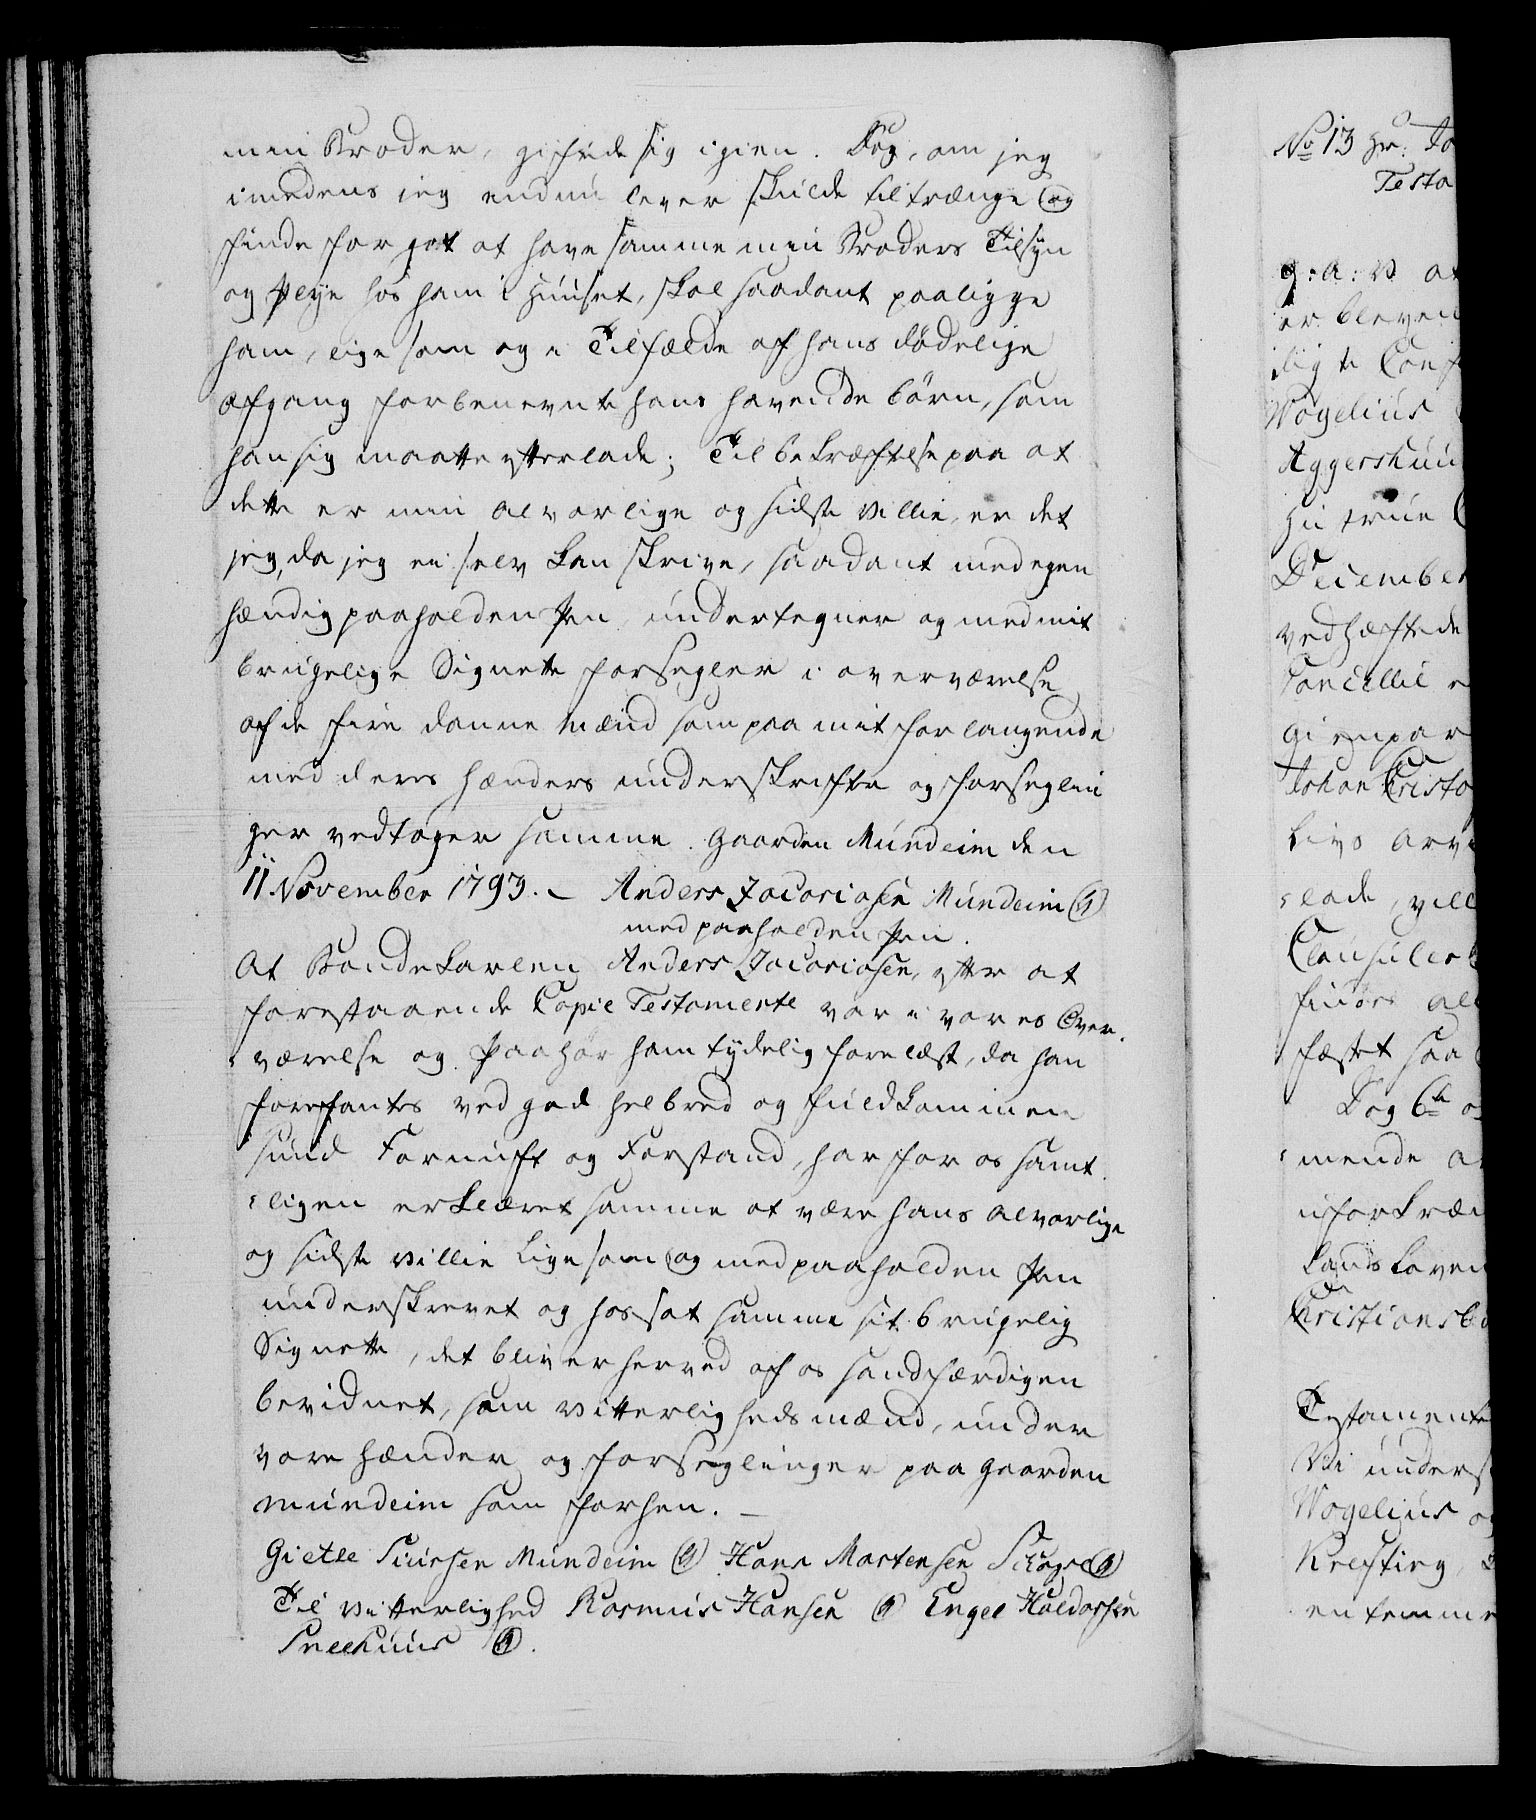 min Broder, giftede sig igien. Dog, om jeg
imedens jeg endnu lever skulde tiltrænge og
finde for got at have samme min Broders Tilsyn
og Pleye hos ham i Huuset, skal saadant paaligge
ham, lige som og i Tilfælde af hans dødelige
afgang forbenevnte hans havende børn, som
han sig maatte efterlade; Til bekræftelse paa at
dette er min alvorlige og sidste villie, er det
jeg, da jeg ei selv kan skrive, saadant med egen
hændig paaholden Pen undertegner og med mit
brugelige Signette forsegler i overværelse
af de fire danne Mænd som paa mit forlangende
med deres hænders underskrifter og forseglin
ger vedtager samme. Gaarden Mundeim den
11 November 1793. – Anders Zacariasen Mundeim
med paaholden Pen.
At Bondekarlen Anders Zacariasen, efter at
forestaaende Copie Testamente var i vores Over-
værelse og Paahør ham tydelig forelæst, da han
forefantes ved god helbred og fuldkommen
sund Fornuft og Forstand, har for os samt
ligen erklæret samme at være hans alvorlige
og sidste villie ligesom og med paaholden Pen
underskrevet og hossat samme sit brugelig
Signette, det bliver herved af os sandfærdigen
bevidnet, som Vitterligheds mænd, under
vore hænder og forseglinger paa Gaarden
Mundeim som forhen. –
Gietle Siursen Mundeim Hans Mortensen
Til Vitterlighed Rasmus Hansen Engel Haldorsen
Sneehuus
No 13 Hr: Jo
Testa
g: A: V at
er bleven
Wogelius
Aggershuu
Hustrue
December
vedhæftede
Cancellie
Gienpar
Johan Christo
livs arv
lade, vill
Clausuler
fæstet saa
Dog 6te
mende
uforkræn
Lands Loven
Christiansb
Testamente
Vi unders
Wogelius og
Krefting,